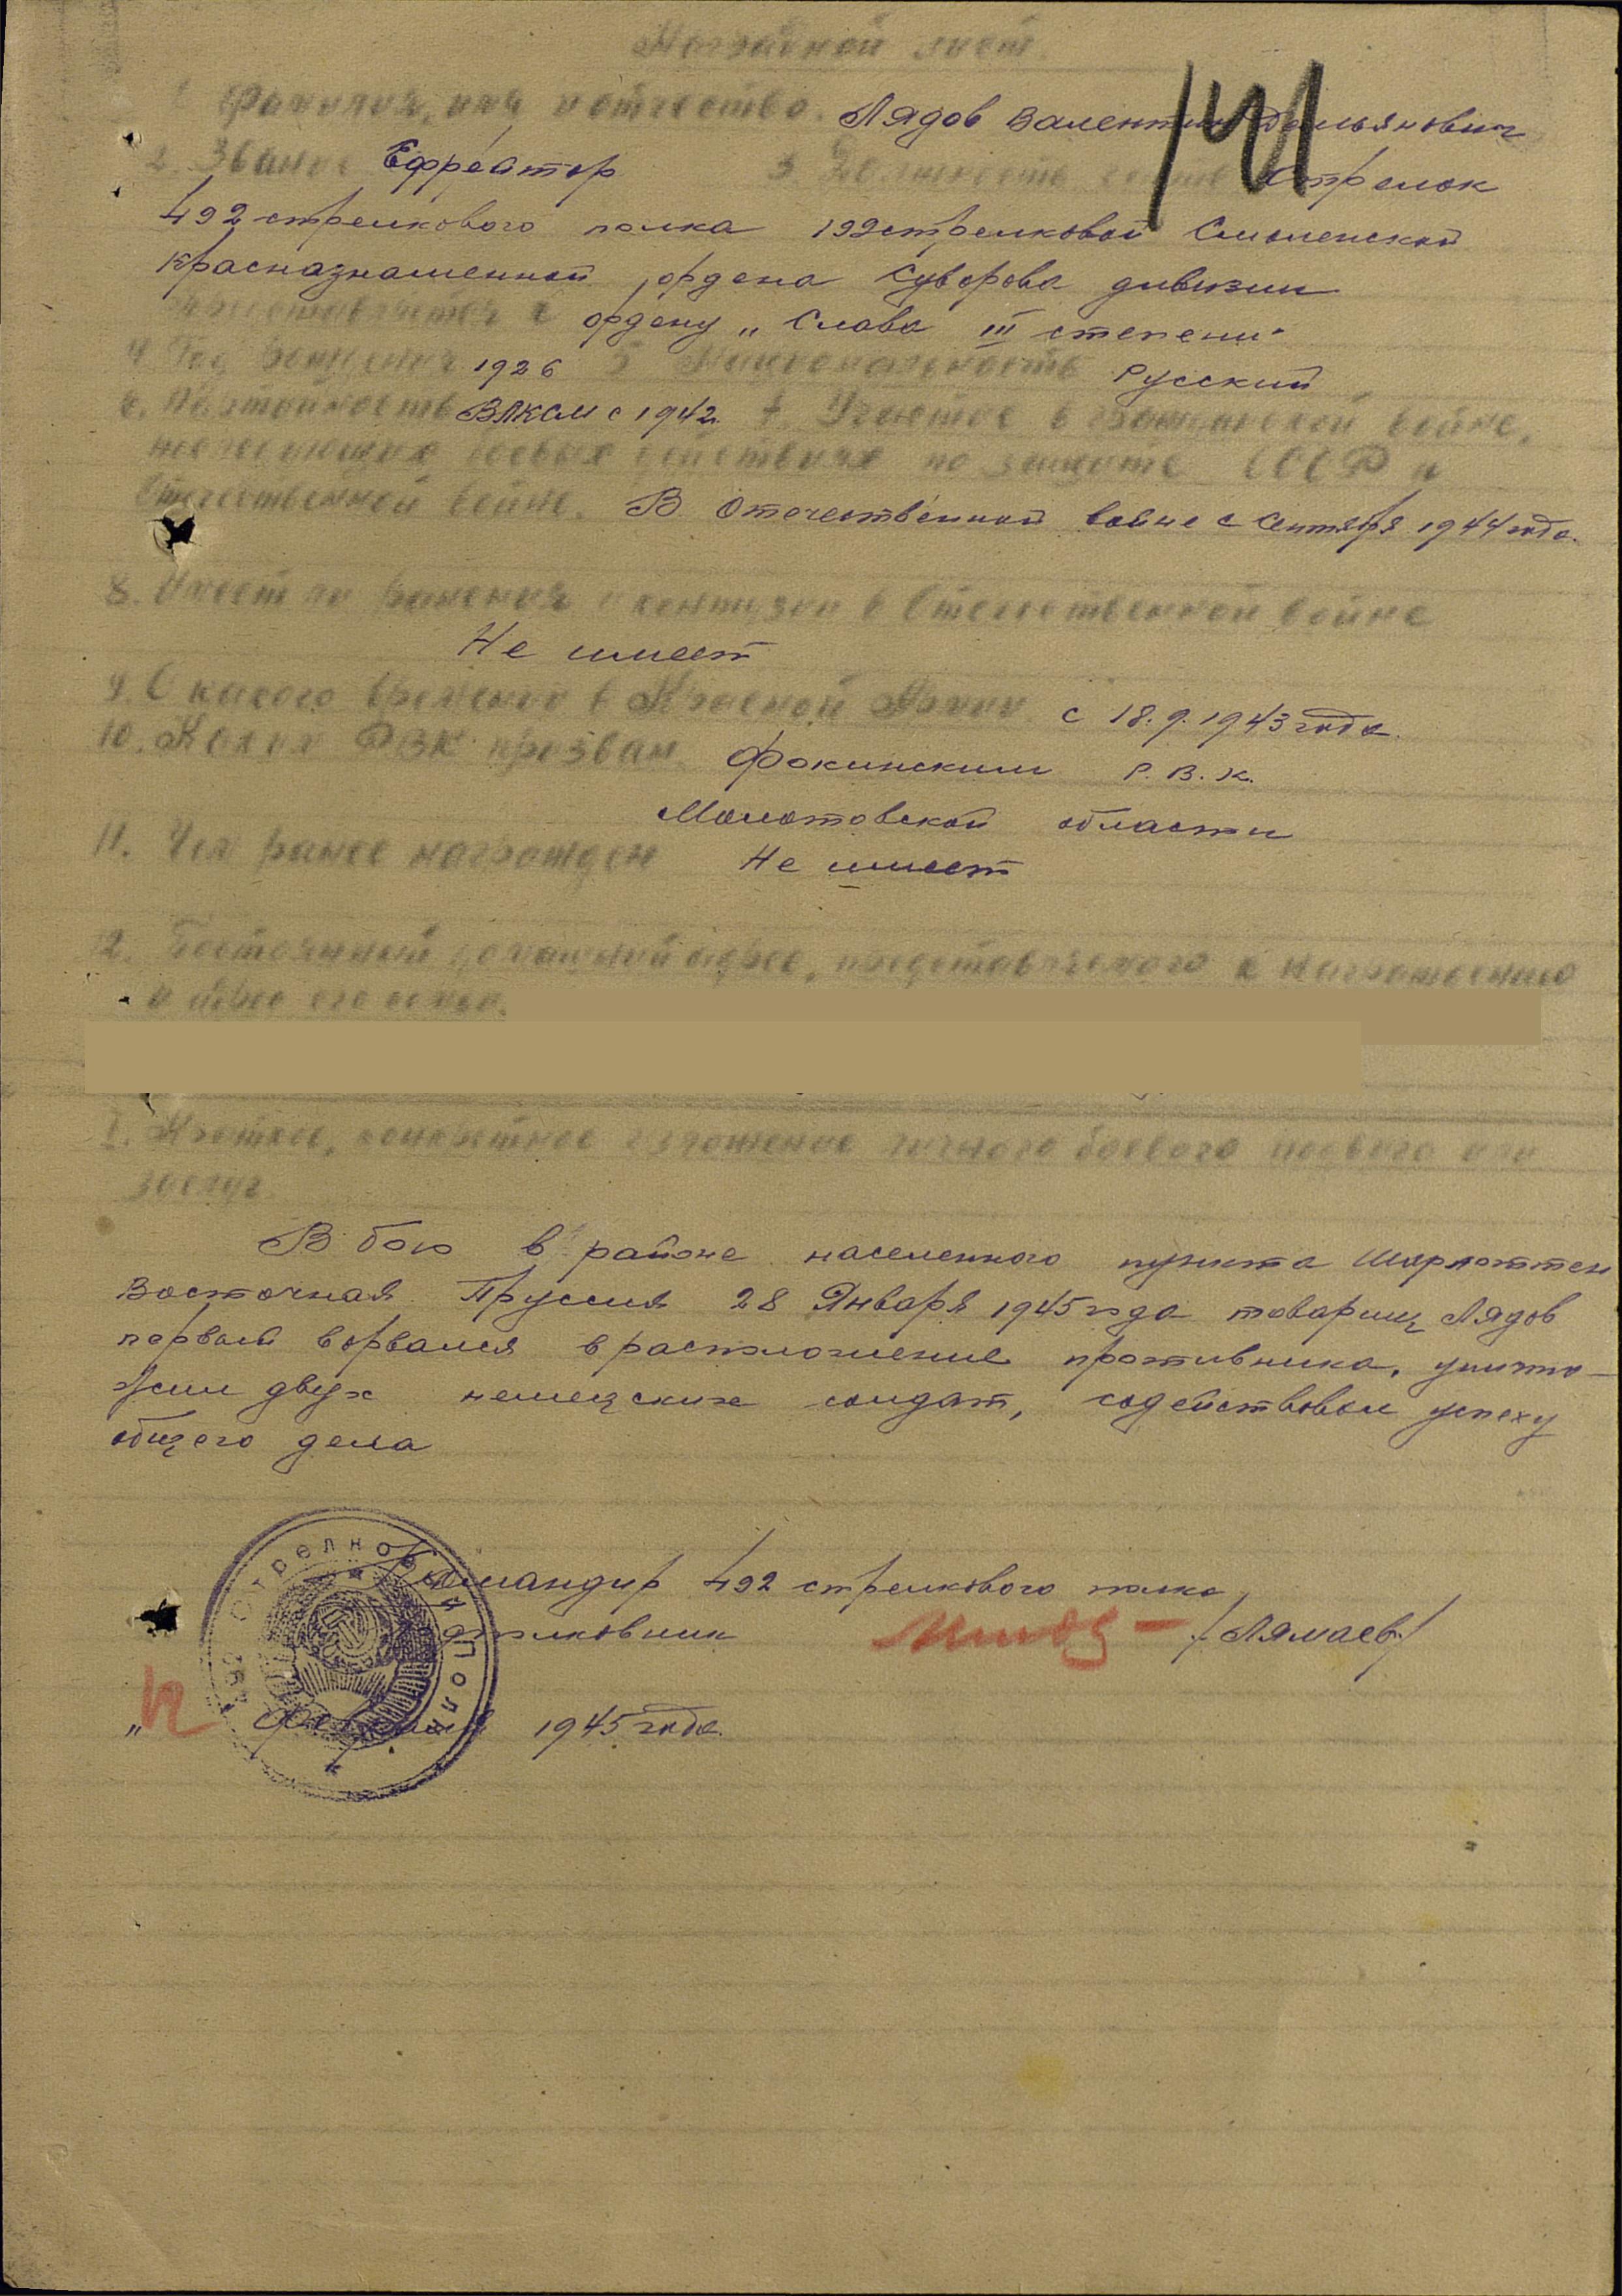 Наградной лист
1. Фамилия, имя и отчество. Лядов Валентин Демьянович
141
2. Звание Ефрейтор 3. Должность, часть Стрелок
492 стрелкового полка 192 стрелковой Смоленской
краснознаменной, ордена Суворова дивизии
представляется к ордену „Слава III степени"
4. Год рождения 1926 5. Национальность Русский
6. Партийность ВЛКСМ с 1942 г. 7. Участие в гражданской войне,
последующих боевых действиях по защите СССР и
Отечественной войне. В Отечественной войне с Сентября 1944 года.
8. Имеет ли ранения и контузии в Отечественной войне
Не имеет
9. С какого времени в Красной Армии с 18.9.1943 года.
10. Каким РВК призван Фокинским Р.В.К.
Молотовской области
11. Чем ранее награжден Не имеет
12. Постоянный домашний адрес, представляемого к награждению
и адрес его семьи.
I. Краткое, конкретное изложение личного боевого подвига или
заслуг.
В бою в районе населенного пункта Шарлоттен
Восточная Пруссия 28 Января 1945 года товарищ Лядов
первый ворвался в расположение противника, уничто-
жил двух немецских солдат, содействовал успеху
общего дела
Командир 492 стрелкового полка
Подполковник /Лямаев/
„12 февраля 1945 года.
492 Стрелковый Полк